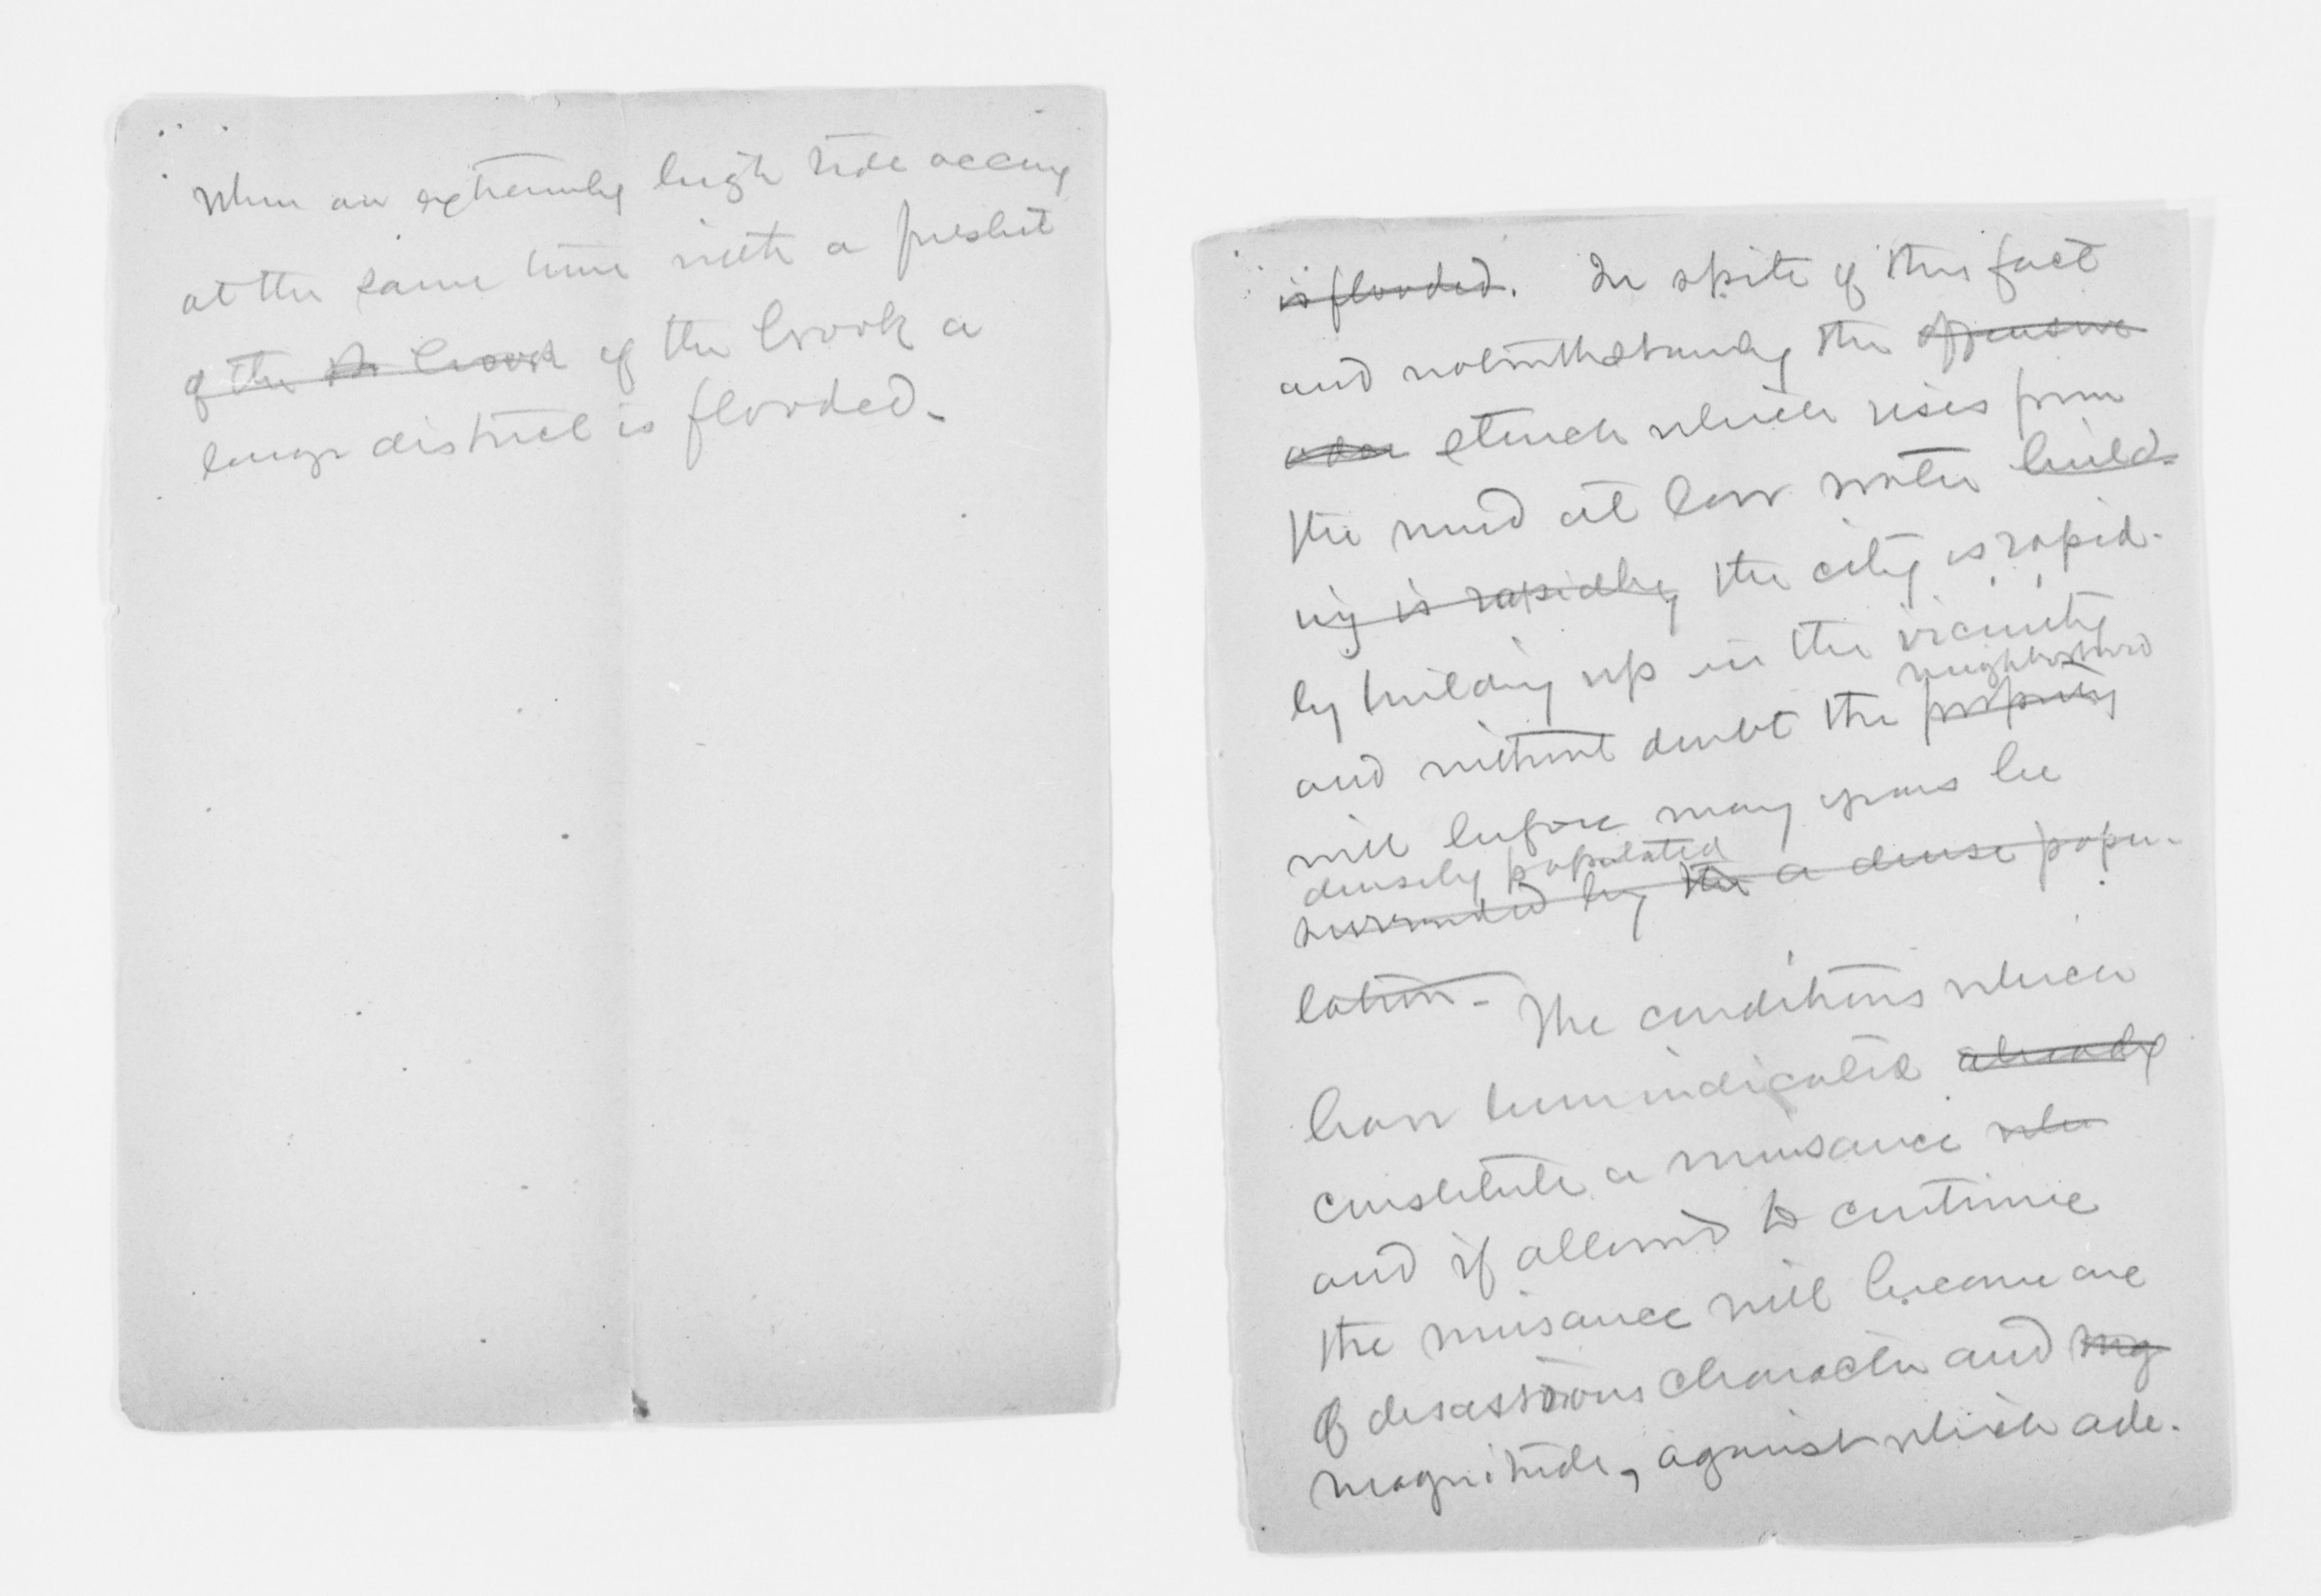 When an extremely high tide occurs
at the same time with a freshet
of the the brook of the brook a
large district is flooded.
is flooded. In spite of this fact
and notwithstanding the offensive
odor stench which rises from
the mud at low water build-
ing is rapidly the city is rapid-
ly building up in the vicinity
neighborhood
and without doubt the property
will before many years be
densely populated
surrounded by the a dense popu-
lation. The conditions which
have been indicated already
constitute a nuisance whe
and if allowed to continue
the nuisance will become one
of desastrous character and mag
magnitude, against which ade-